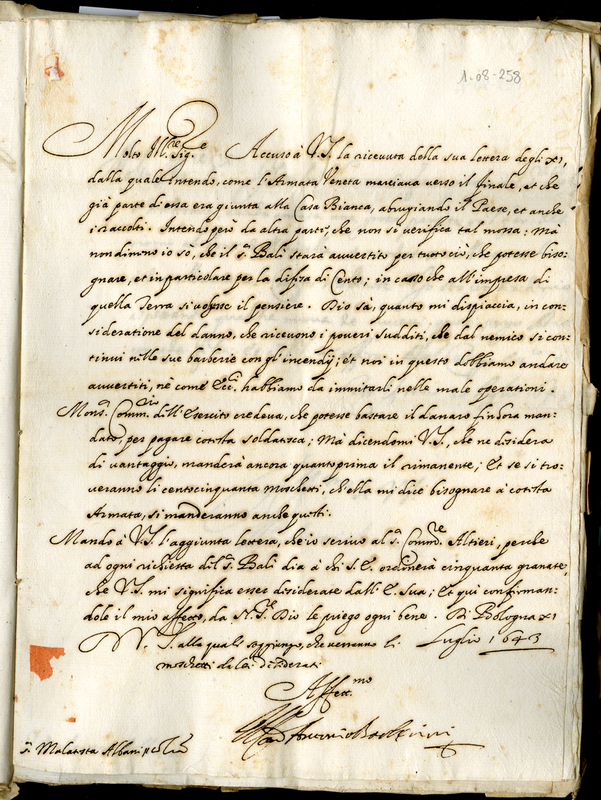 1-08-258
Molto Ill.re Sig.re Accuso à V.S. la ricevuta della sua lettera degli XI,
dalla quale intendo, come l'Armata Veneta marciava verso il finale, et che
già parte di essa era giunta alla Casa Bianca, abrugiando il Paese, et anche
i raccolti. Intendo però da altra parte, che non si verifica tal mossa: Mà
nondimeno io sò, che il s.r Balì starà avvertito per tutto ciò, che potesse biso:
gnare, et in particolare per la difesa di Cento; in caso che all'impresa di
quella Terra si volgesse il pensiere. Dio sà, quanto mi dispiaccia, in con:
sideratione del danno, che ricevono i poveri sudditi, che dal nemico si con:
tinui nelle sue barberie con gl'incendij; et noi in questo dobbiamo andare
avvertiti, nè come habbiamo da immitarli nelle male operationi.
Mons.r Comm.rio dell'Esercito credeva, che potesse bastare il danaro finhora man:
dato, per pagare cotesta soldatesca; Mà dicendomi V.S. che ne desidera
di vantaggio, manderà ancora quanto prima il rimanente; Et se si tro:
veranno li centocinquanta moschetti, ch'ella mi dice bisognare à cotesta
Armata, si manderanno anche questi.
Mando à V.S. l'aggiunta lettera, che io scrivo al s.r Comm.re Altieri, perche
ad ogni richiesta del s.r Balì dia à chi S.E. ordinerà cinquanta granate,
che V.S. mi significa esser desiderate dall'E. Sua; Et qui confirman:
dole il mio affetto, da N.S.re Dio le priego ogni bene. Di Bologna XI
Luglio 1643
V.S. alla quale soggiungo, che verranno li
moschetti da lei desiderati
Affett.mo
s.r Malatesta Albani